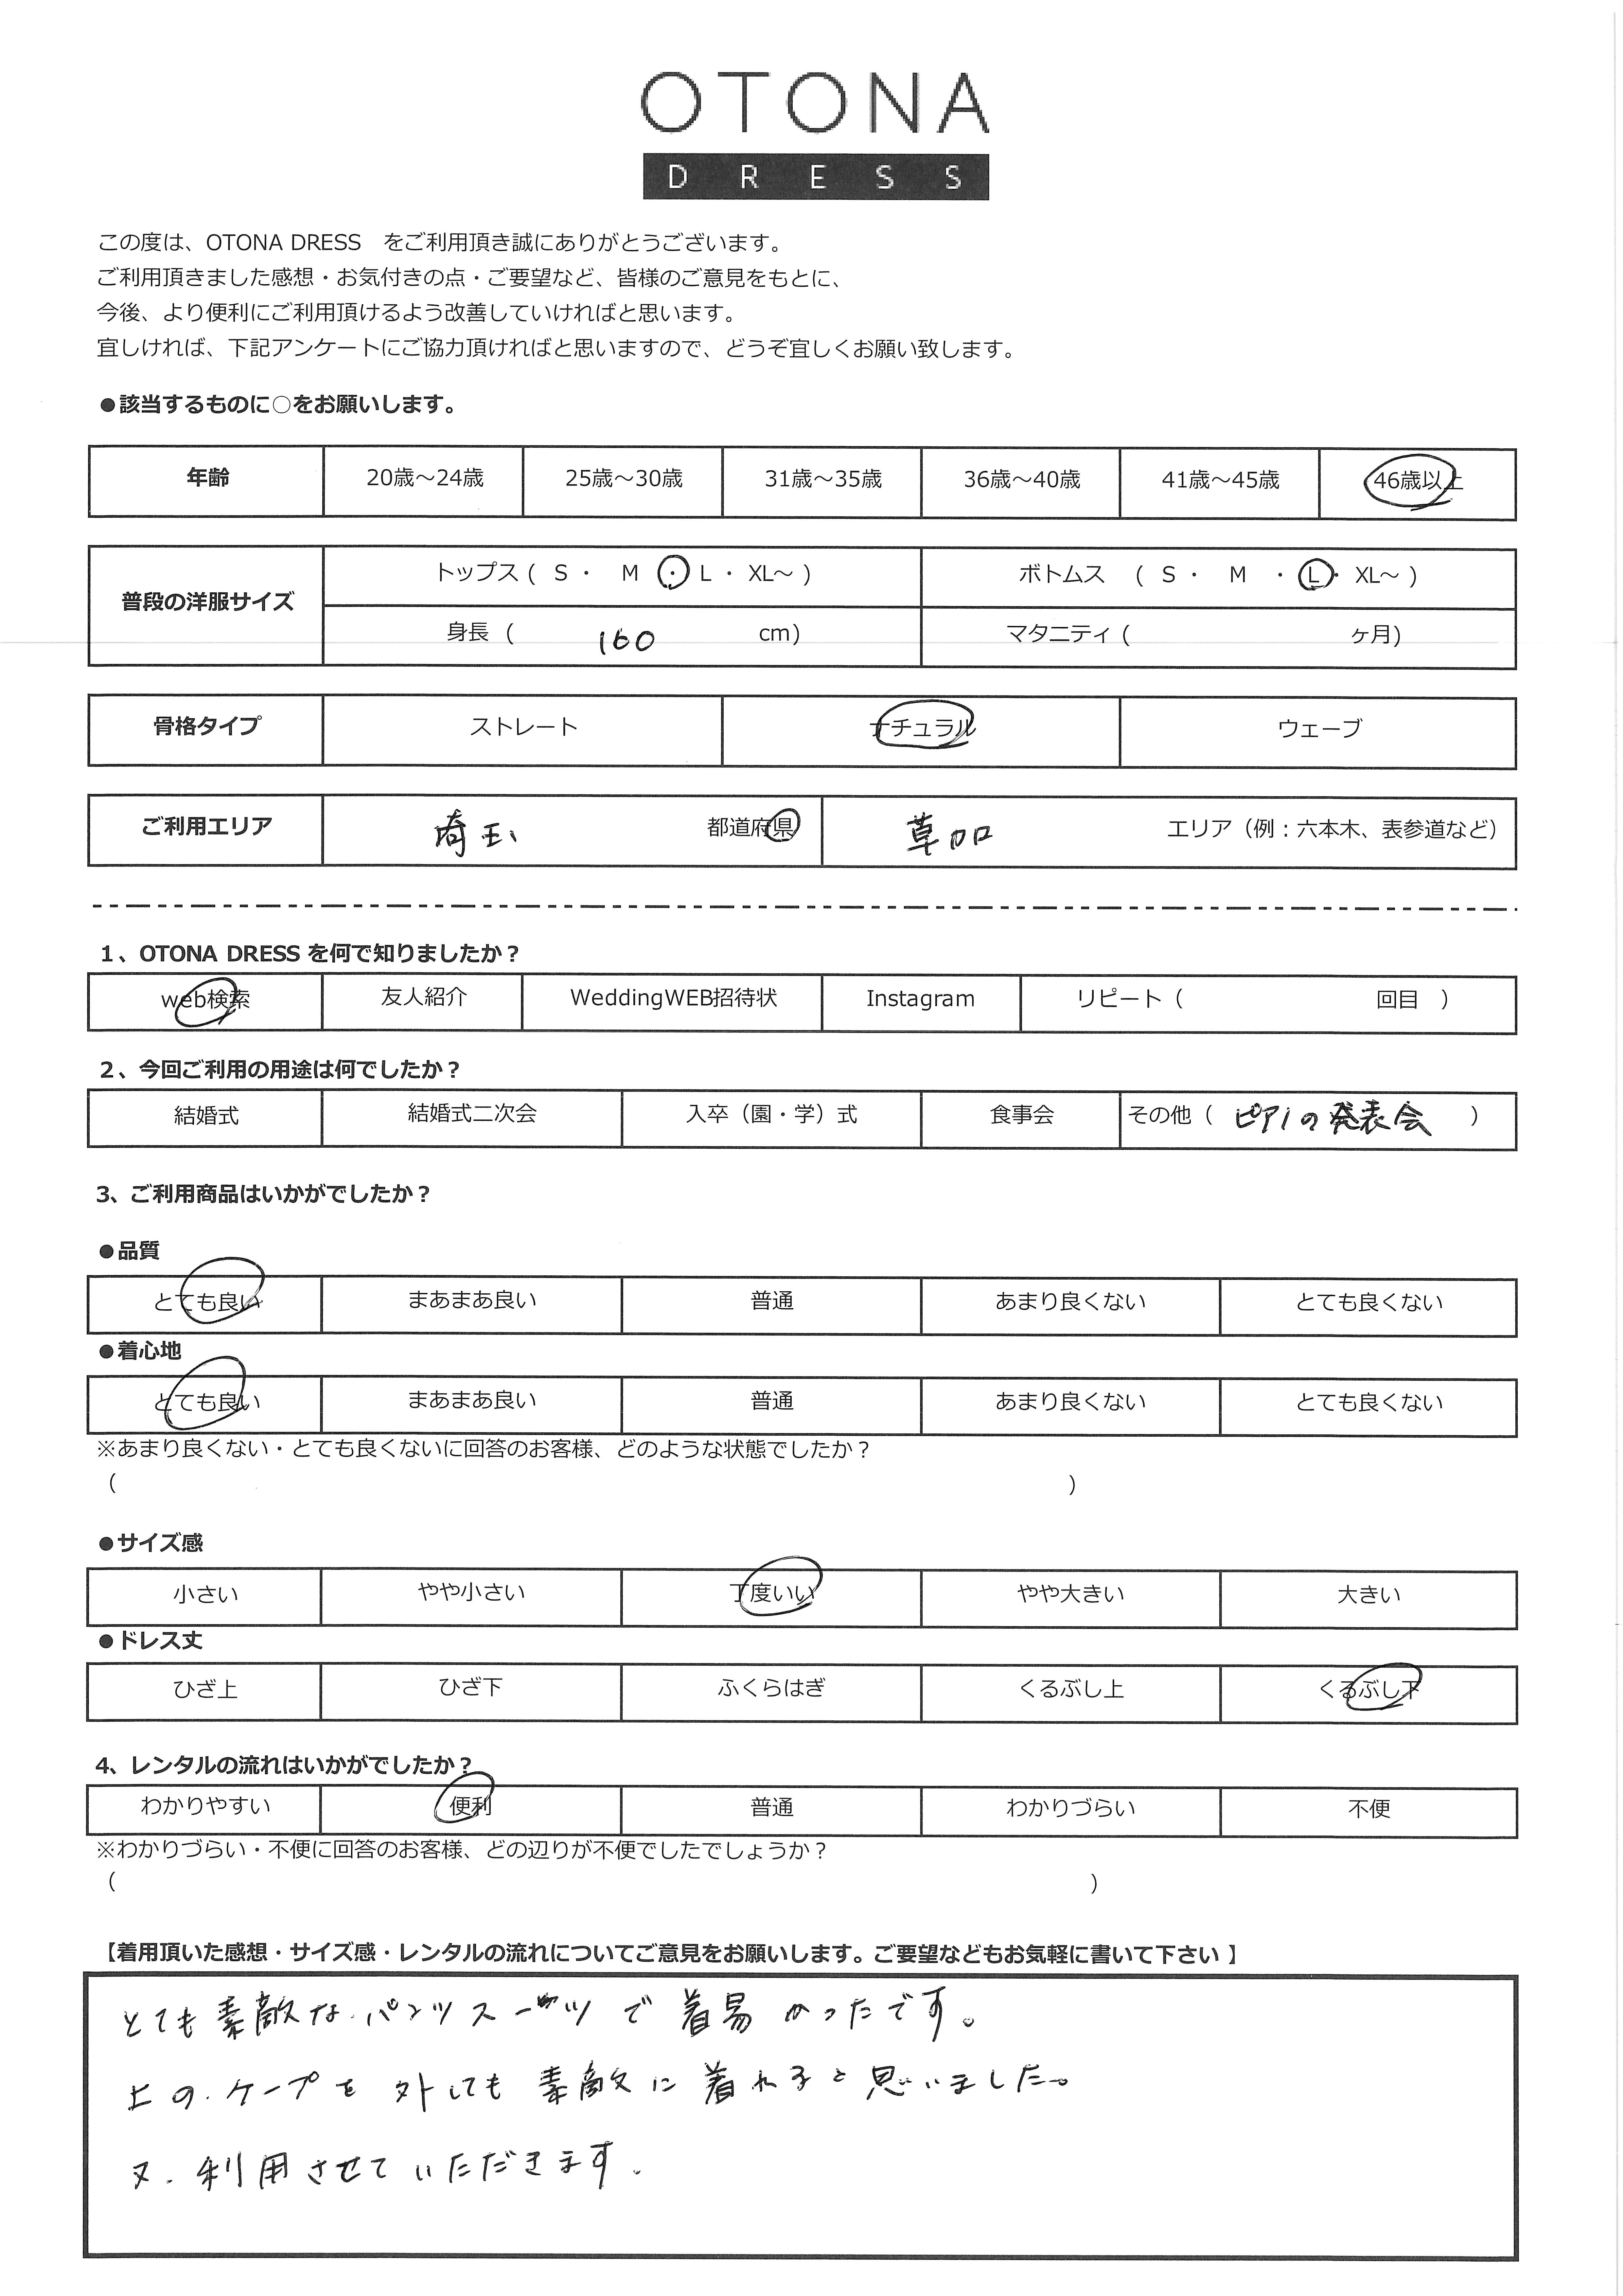 OTONA
DRESS
この度は、OTONA DRESS　をご利用頂き誠にありがとうございます。
ご利用頂きました感想・お気付きの点・ご要望など、皆様のご意見をもとに、
今後、より便利にご利用頂けるよう改善していければと思います。
宜しければ、下記アンケートにご協力頂ければと思いますので、どうぞ宜しくお願い致します。
●該当するものに○をお願いします。
年齢 20歳～24歳 25歳～30歳 31歳～35歳 36歳～40歳 41歳～45歳 46歳以上
普段の洋服サイズ トップス ( S ・ M ・ L ・ XL～ ) ボトムス ( S ・ M ・ L ・ XL～ )
身長 ( 160 cm) マタニティ ( ヶ月)
骨格タイプ ストレート ナチュラル ウェーブ
ご利用エリア 埼玉 都道府県 草加 エリア（例：六本木、表参道など）
1、OTONA DRESS を何で知りましたか？
web検索 友人紹介 WeddingWEB招待状 Instagram リピート（ 回目 ）
2、今回ご利用の用途は何でしたか？
結婚式 結婚式二次会 入卒（園・学）式 食事会 その他（ ピアノの発表会 ）
3、ご利用商品はいかがでしたか？
●品質
とても良い まあまあ良い 普通 あまり良くない とても良くない
●着心地
とても良い まあまあ良い 普通 あまり良くない とても良くない
※あまり良くない・とても良くないに回答のお客様、どのような状態でしたか？
（ ）
●サイズ感
小さい やや小さい 丁度いい やや大きい 大きい
●ドレス丈
ひざ上 ひざ下 ふくらはぎ くるぶし上 くるぶし下
4、レンタルの流れはいかがでしたか？
わかりやすい 便利 普通 わかりづらい 不便
※わかりづらい・不便に回答のお客様、どの辺りが不便でしたでしょうか？
（ ）
【着用頂いた感想・サイズ感・レンタルの流れについてご意見をお願いします。ご要望などもお気軽に書いて下さい 】
とても素敵なパンツスーツで着易かったです。
上のケープを外しても素敵に着れると思いました。
又、利用させていただきます。